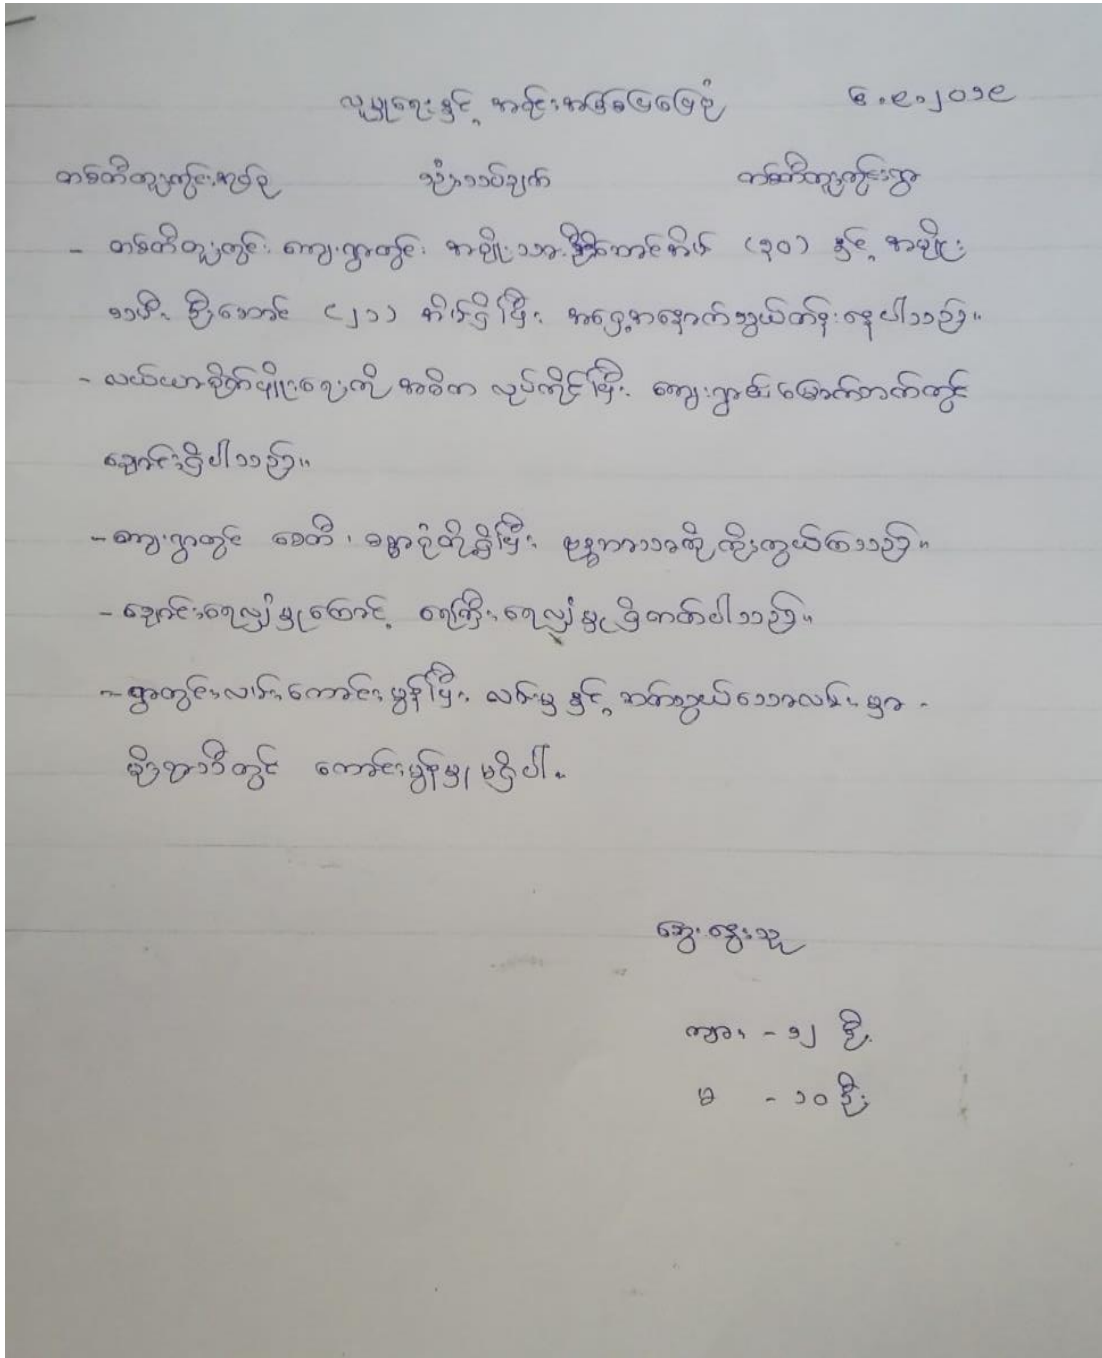 လူမှုရေးနှင့် အရင်းအမြစ်ပြမြေပုံ ၆.၉.၂၀၁၉
တစ်တီတူတွင်းအုပ်စု သုံးသပ်ချက် တစ်တီတူတွင်းရွာ
- တစ်တီတူတွင်း ကျေးရွာတွင် အမျိုးသား ဦးစီးအိမ် (၃၀) နှင့် အမျိုး
သမီး ဦးဆောင် (၂၁) အိမ်ရှိပြီး အရှေ့အနောက်သွယ်တန်းနေပါသည်။
- လယ်ယာစိုက်ပျိုးရေးကို အဓိက လုပ်ကိုင်ပြီး ကျေးရွာ၏မြောက်ဘက်တွင်
ချောင်းရှိပါသည်။
- ကျေးရွာတွင် စေတီ ၊ ဓမ္မာရုံတို့ရှိပြီး ဗုဒ္ဓဘာသာကို ကိုးကွယ်ကြသည်။
- ချောင်းရေလျှံမှုကြောင့် ရေကြီးရေလျှံမှု ရှိတတ်ပါသည်။
- ရွာတွင်းလမ်းကောင်းမွန်ပြီး လမ်းမ နှင့် ဆက်သွယ်သောလမ်းမှာ
မိုးရာသီတွင် ကောင်းမွန်မှု မရှိပါ။
ဆွေးနွေးသူ
ကျား - ၁၂ ဦး
မ - ၁၀ ဦး